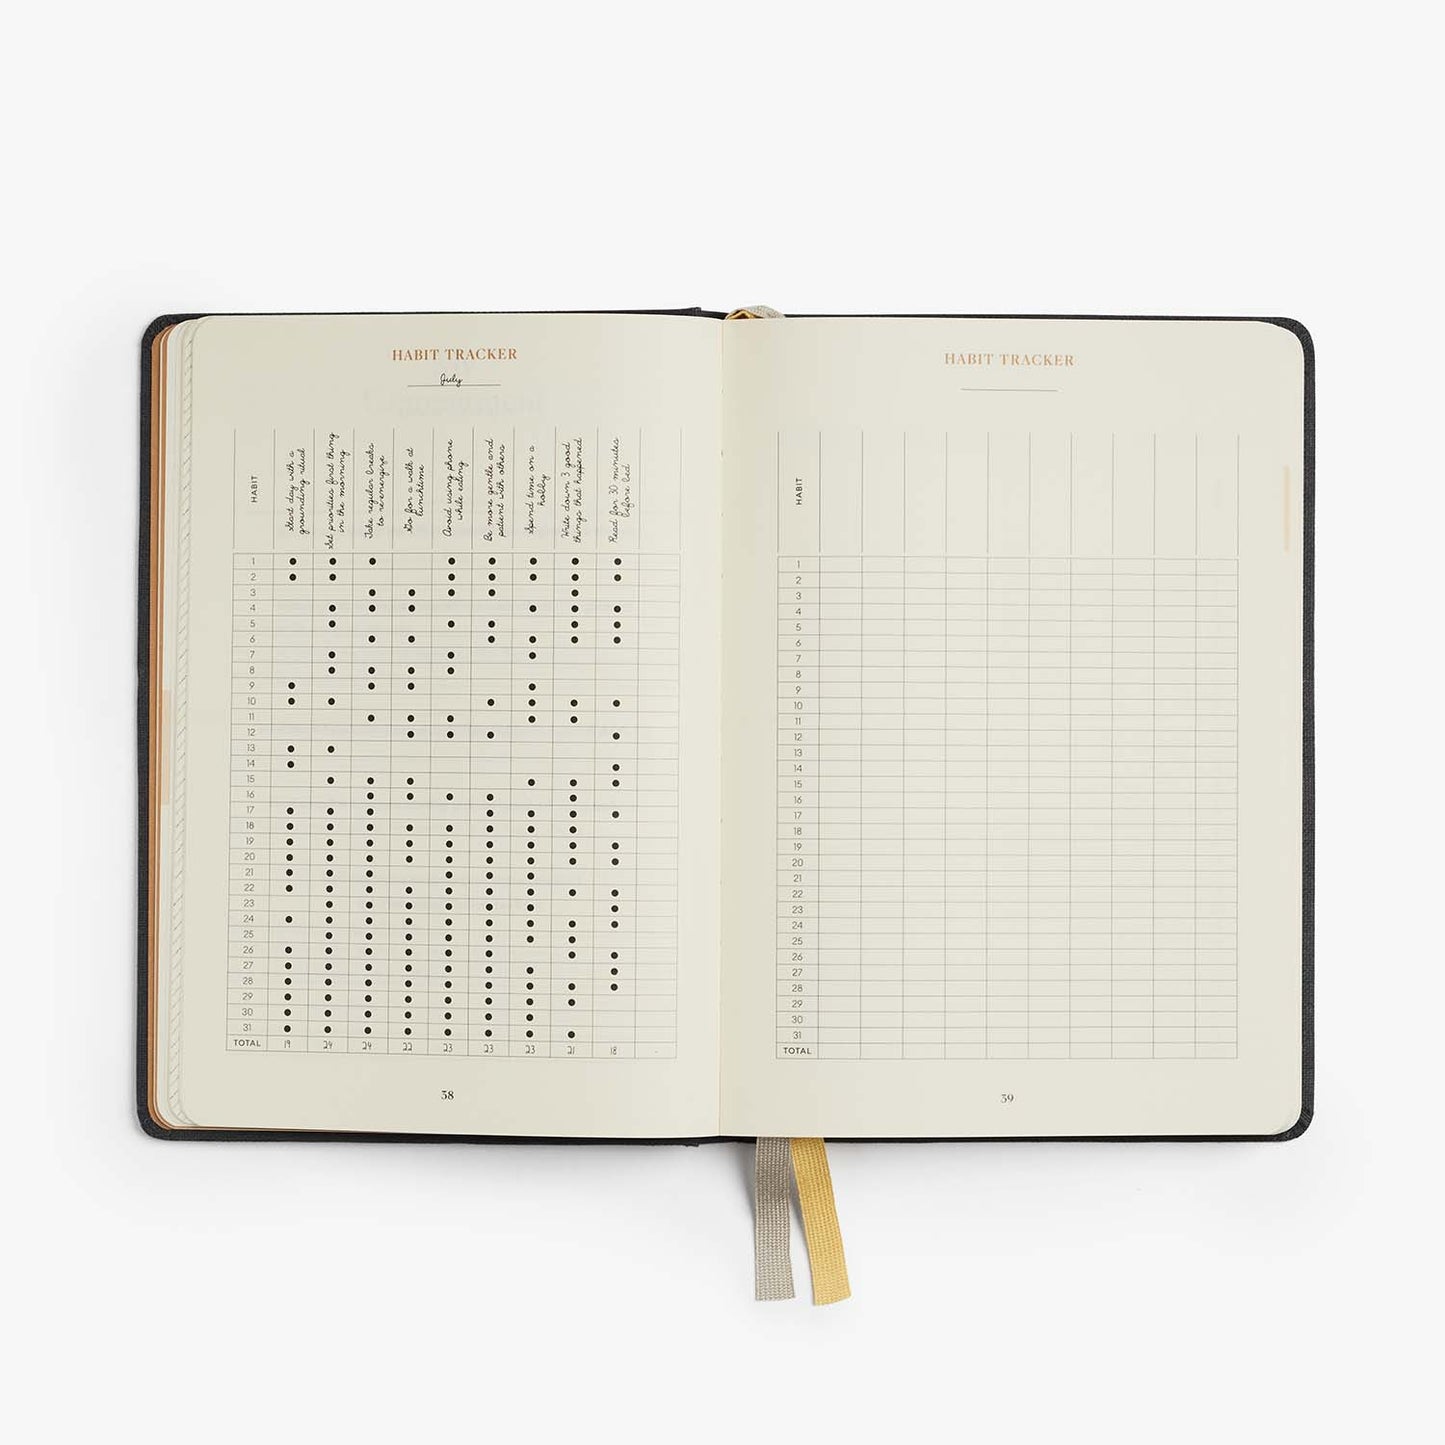 HABIT TRACKER
July
HABIT
Start day with a
grounding ritual
Set priorities first thing
in the morning
Take regular breaks
to re-energize
Go for a walk at
lunchtime
Avoid using phone
while eating
Be more gentle and
patient with others
Spend time on a
hobby
Write down 3 good
things that happened
Read for 30 minutes
before bed
1
2
3
4
5
6
7
8
9
10
11
12
13
14
15
16
17
18
19
20
21
22
23
24
25
26
27
28
29
30
31
TOTAL 19 24 24 22 23 23 23 21 18
38
HABIT TRACKER
HABIT
1
2
3
4
5
6
7
8
9
10
11
12
13
14
15
16
17
18
19
20
21
22
23
24
25
26
27
28
29
30
31
TOTAL
39